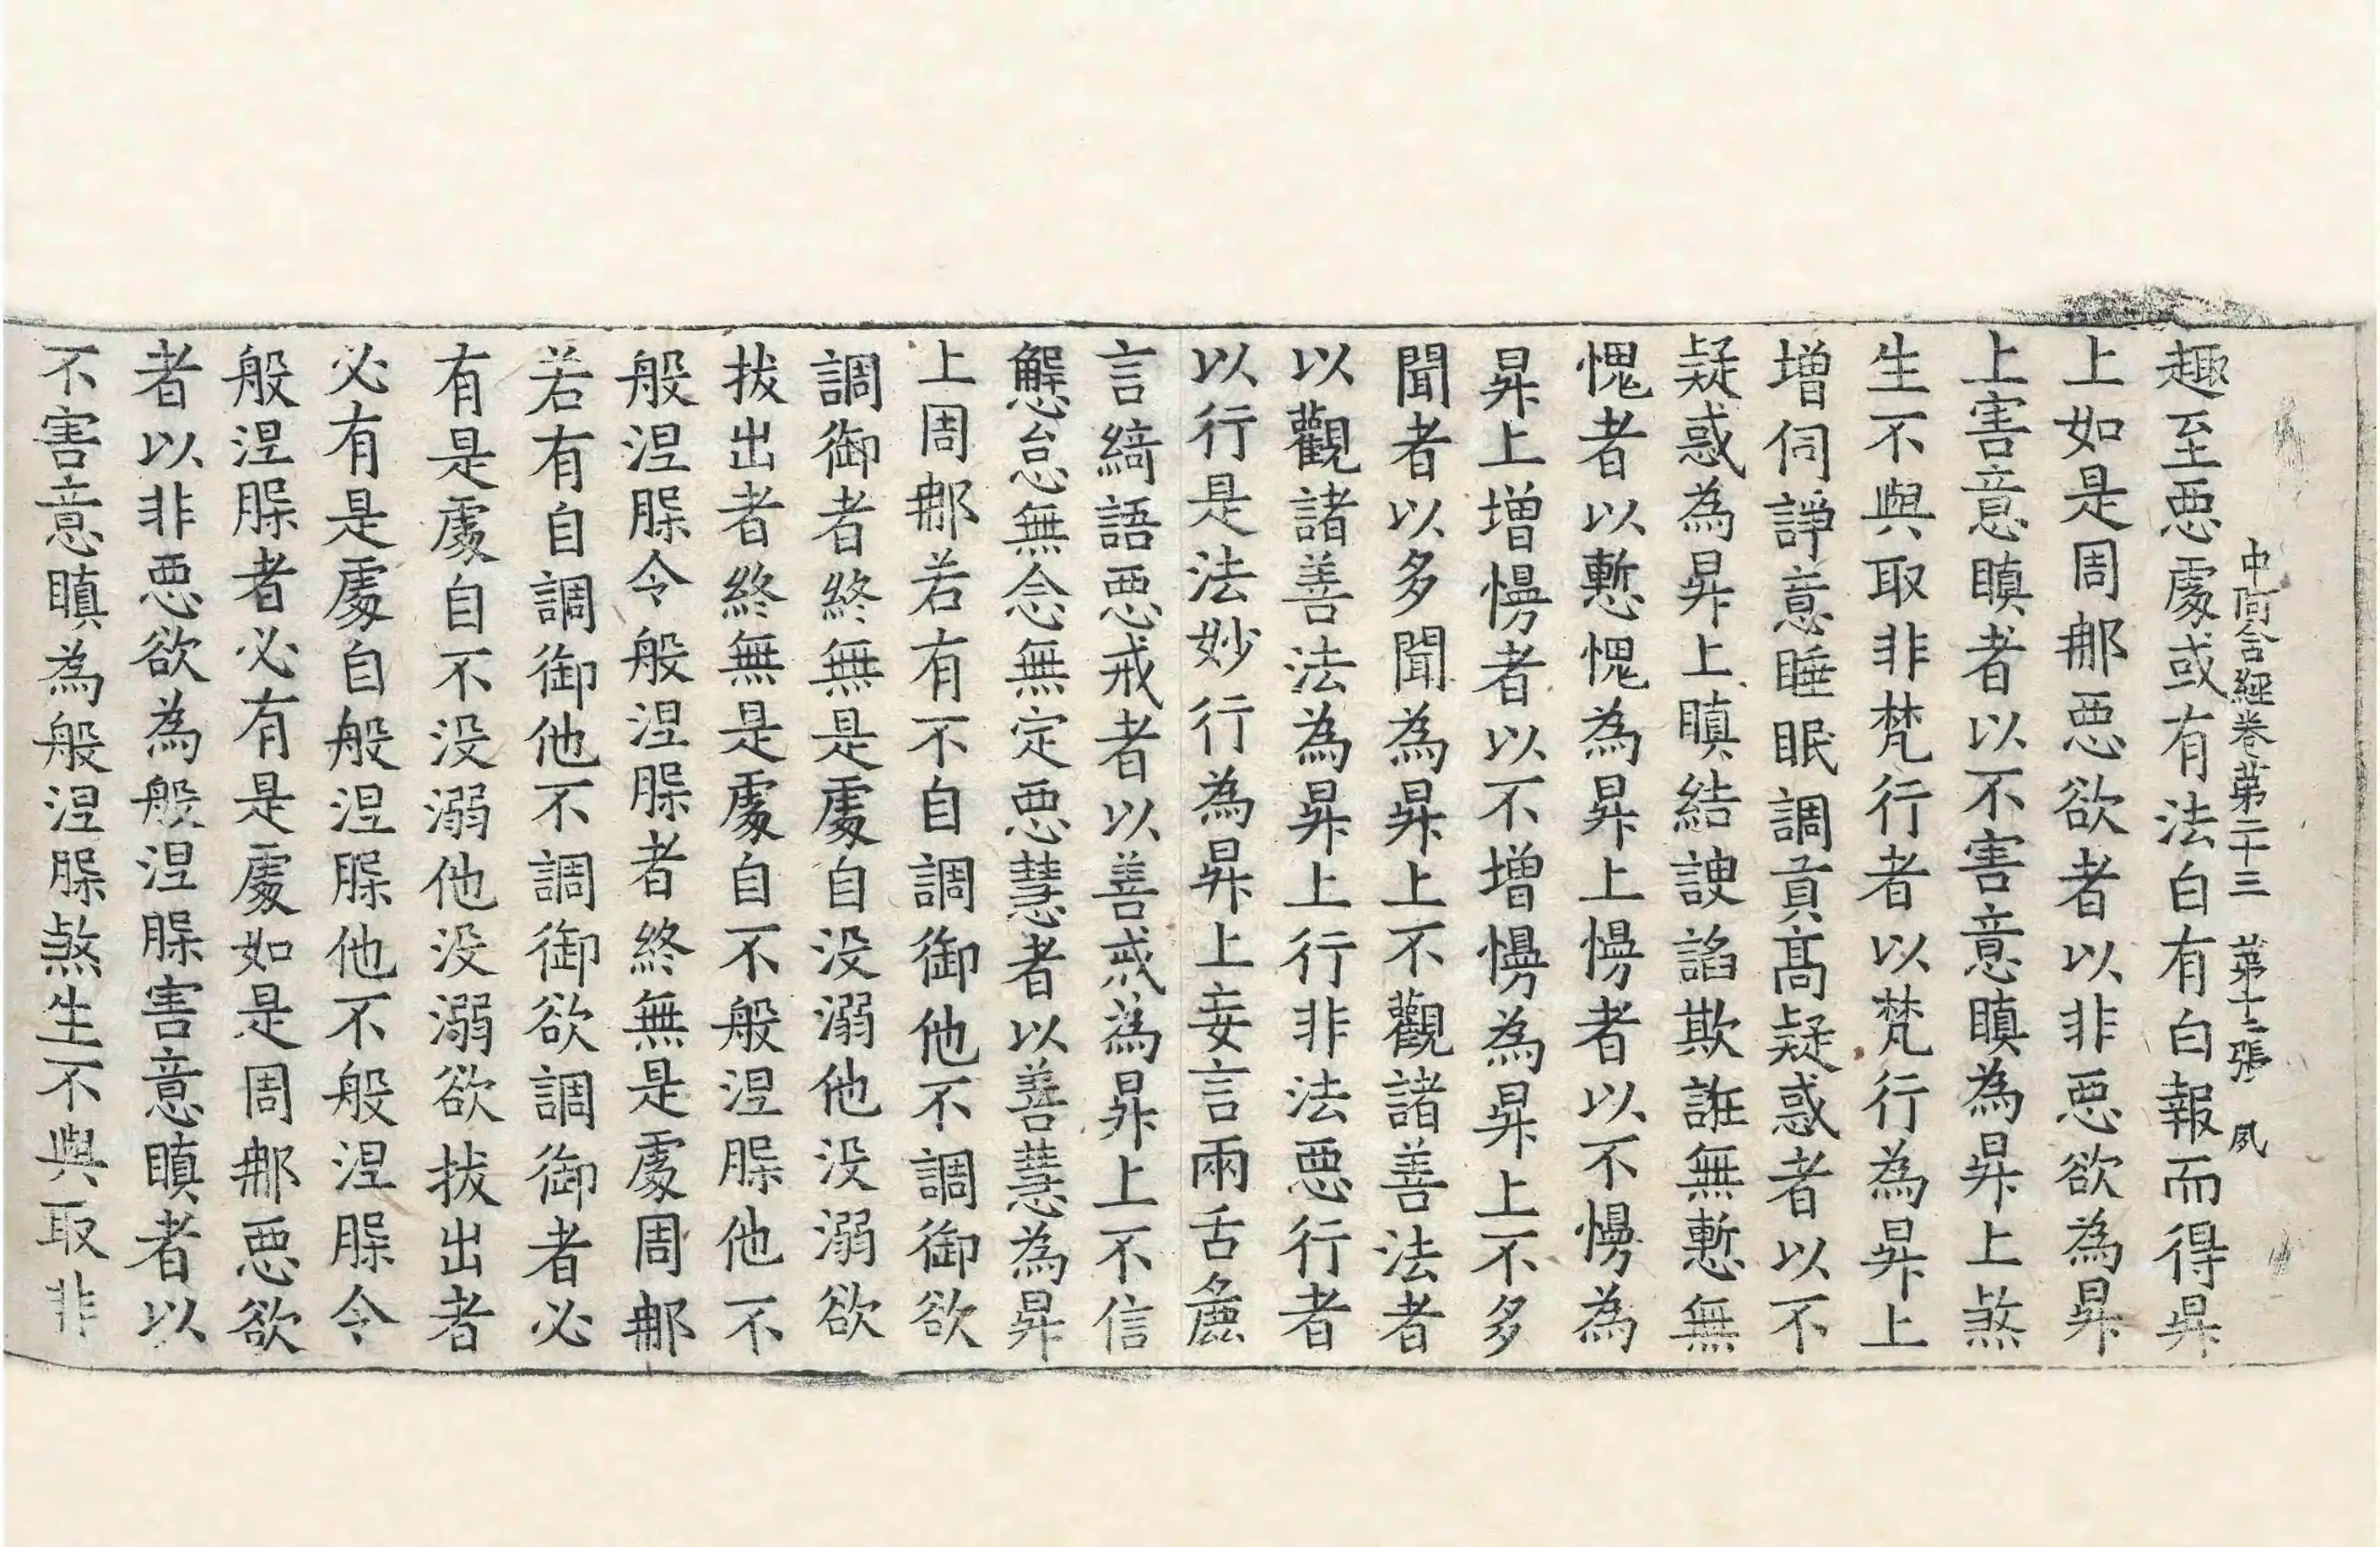 中阿含經卷第二十三　第十二張　夙
趣至惡處或有法白有白報而得昇
上如是周那惡欲者以非惡欲為昇
上害意瞋者以不害意瞋為昇上煞
生不與取非梵行者以梵行為昇上
增伺諍意睡眠調貢高疑惑者以不
疑惑為昇上瞋結諛諂欺誑無慙無
愧者以慙愧為昇上慢者以不慢為
昇上增慢者以不增慢為昇上不多
聞者以多聞為昇上不觀諸善法者
以觀諸善法為昇上行非法惡行者
以行是法妙行為昇上妄言兩舌麁
言綺語惡戒者以善戒為昇上不信
懈怠無念無定惡慧者以善慧為昇
上周那若有不自調御他不調御欲
調御者終無是處自沒溺他沒溺欲
拔出者終無是處自不般涅槃他不
般涅槃令般涅槃者終無是處周那
若有自調御他不調御欲調御者必
有是處自不沒溺他沒溺欲拔出者
必有是處自般涅槃他不般涅槃令
般涅槃者必有是處如是周那惡欲
者以非惡欲為般涅槃害意瞋者以
不害意瞋為般涅槃煞生不與取非